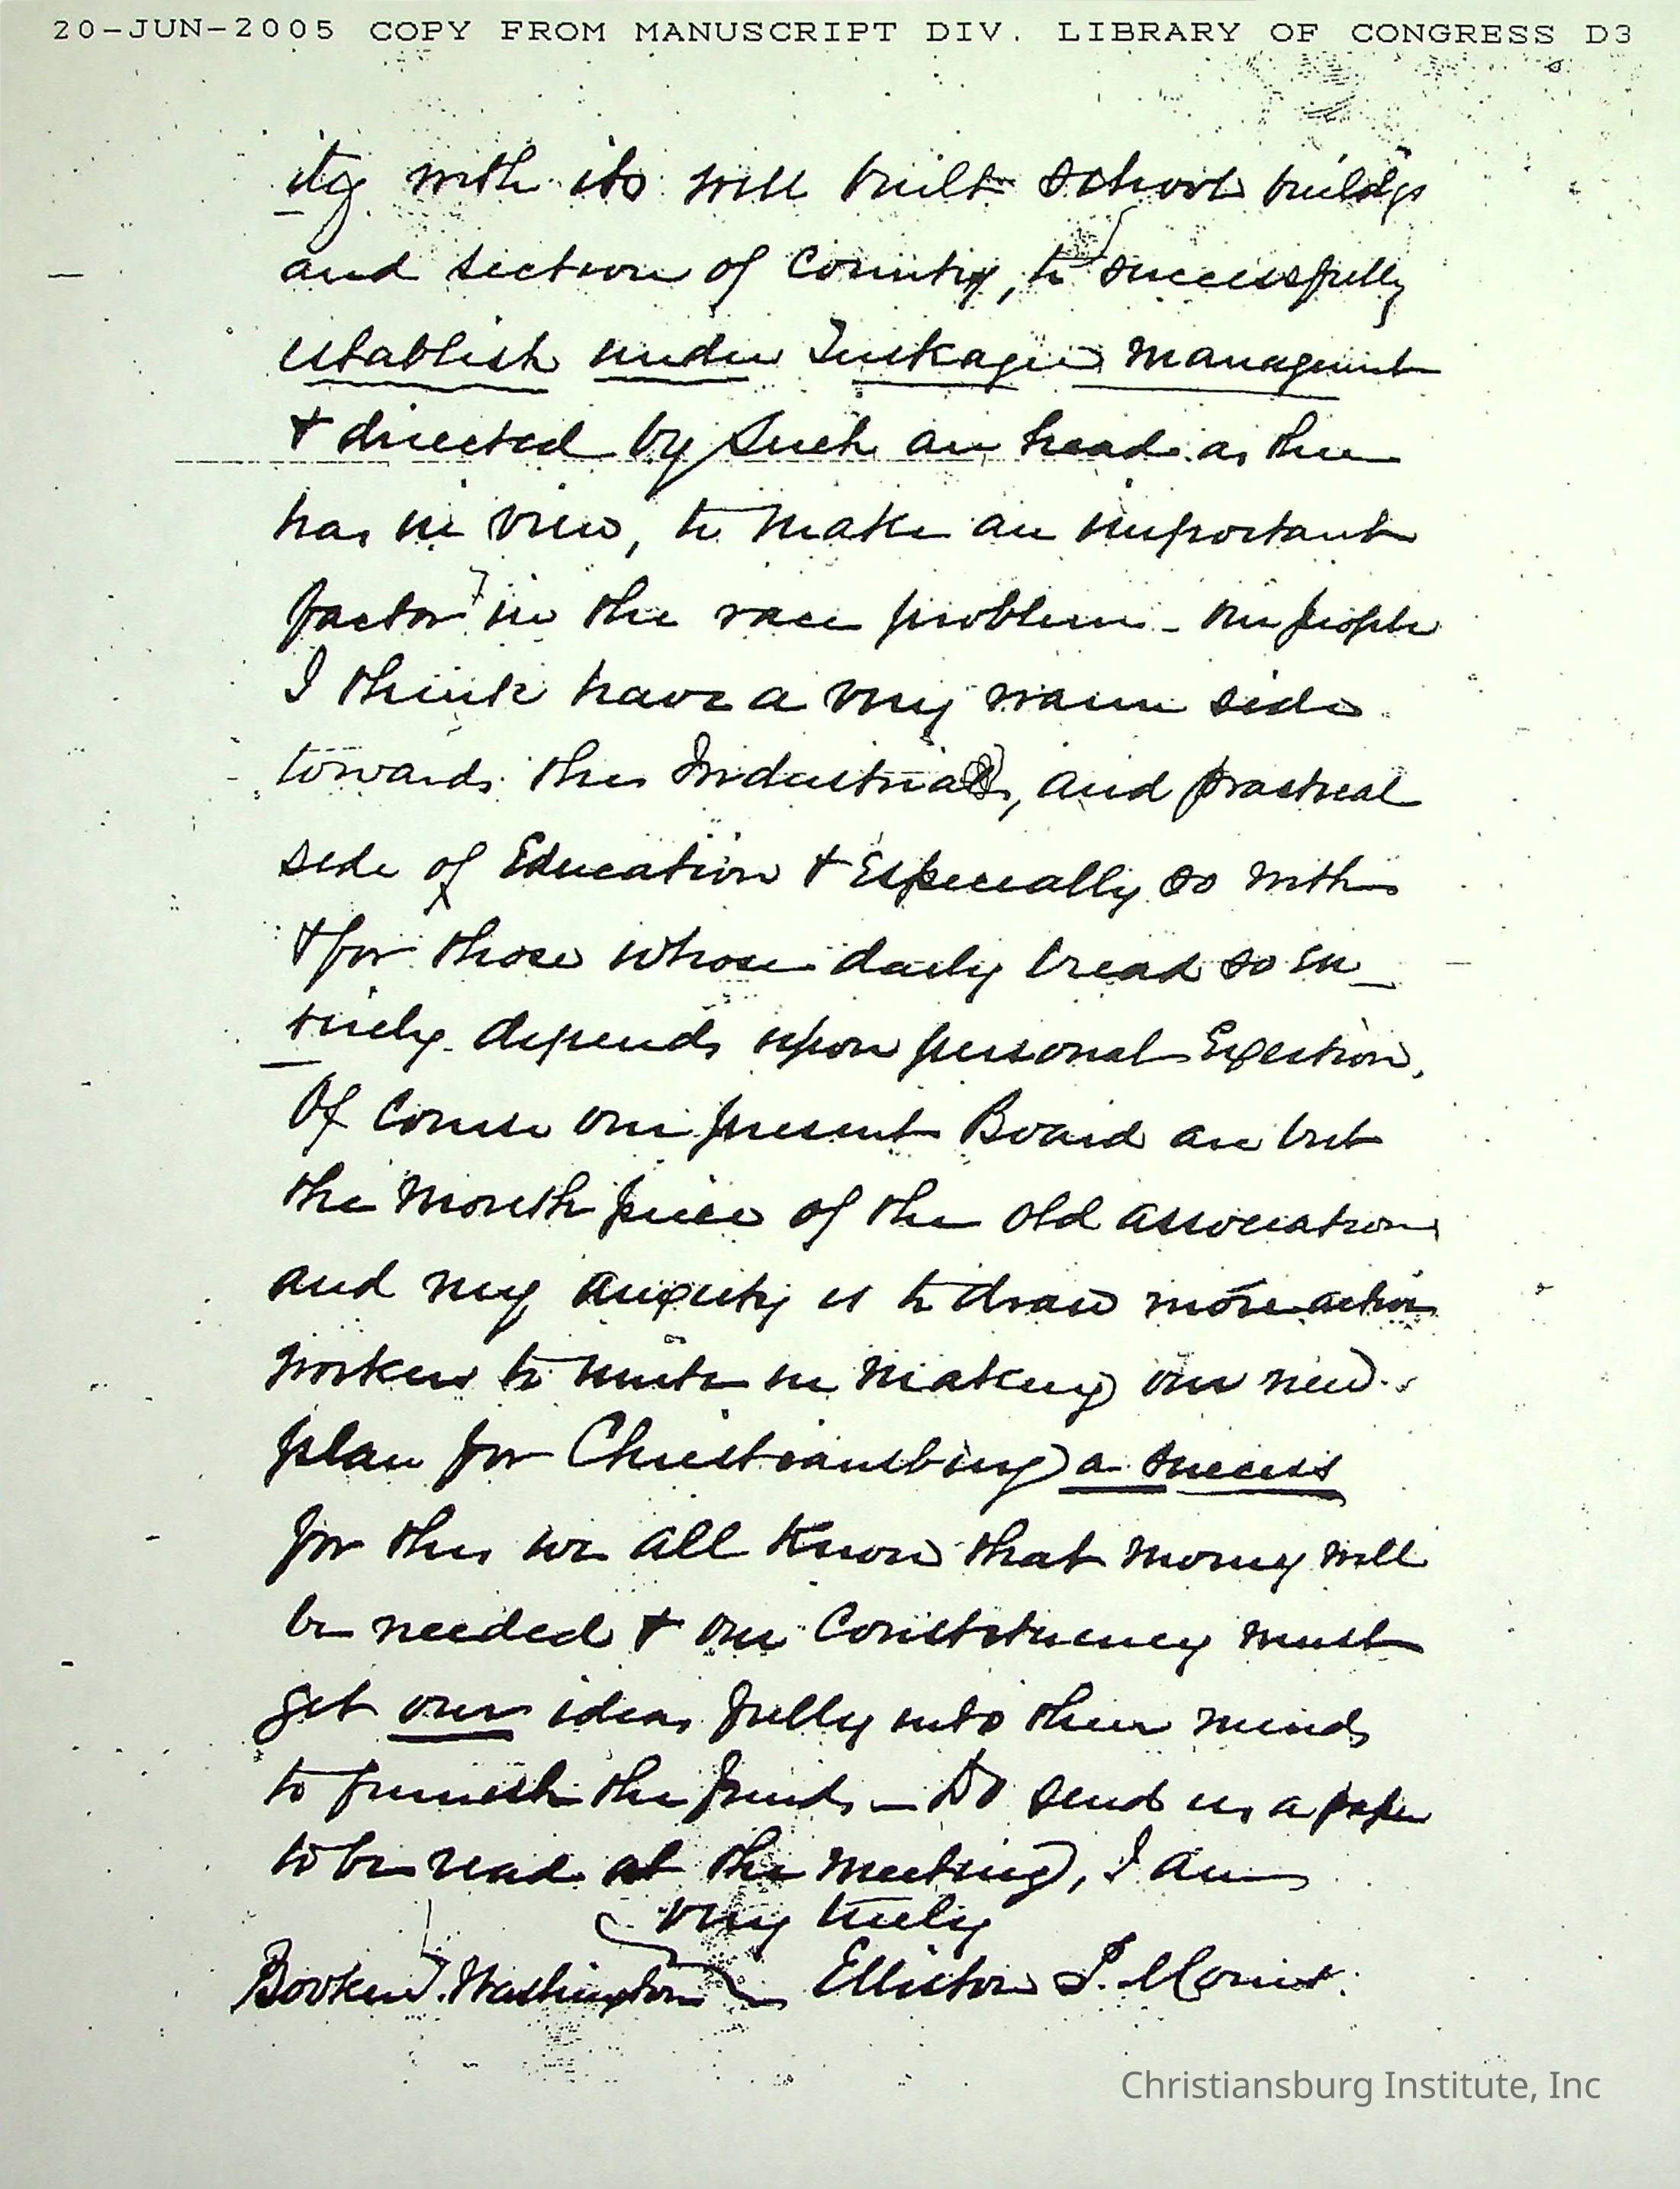 20-JUN-2005 COPY FROM MANUSCRIPT DIV. LIBRARY OF CONGRESS D3
ity with its well built school build'gs
and section of Country, to successfully
establish under Tuskagee management
& directed by such an head as thee
has in view, to make an important
factor in the race problem - our people
I think have a very warm side
towards this Industrial, and practical
side of Education & Especially so with
& for those whose daily bread so en-
tirely depends upon personal Exertion.
Of course our present Board are but
the mouth piece of the old association
and my anxiety is to draw more active
workers to unite in making our new
plan for Christiansburg a success
for this we all know that money will
be needed & our Constituency must
get our ideas fully into their minds
to furnish the funds - Do send us a paper
to be read at the meeting, I am
very truly
Booker T. Washington Elliston P. Morris.
Christiansburg Institute, Inc